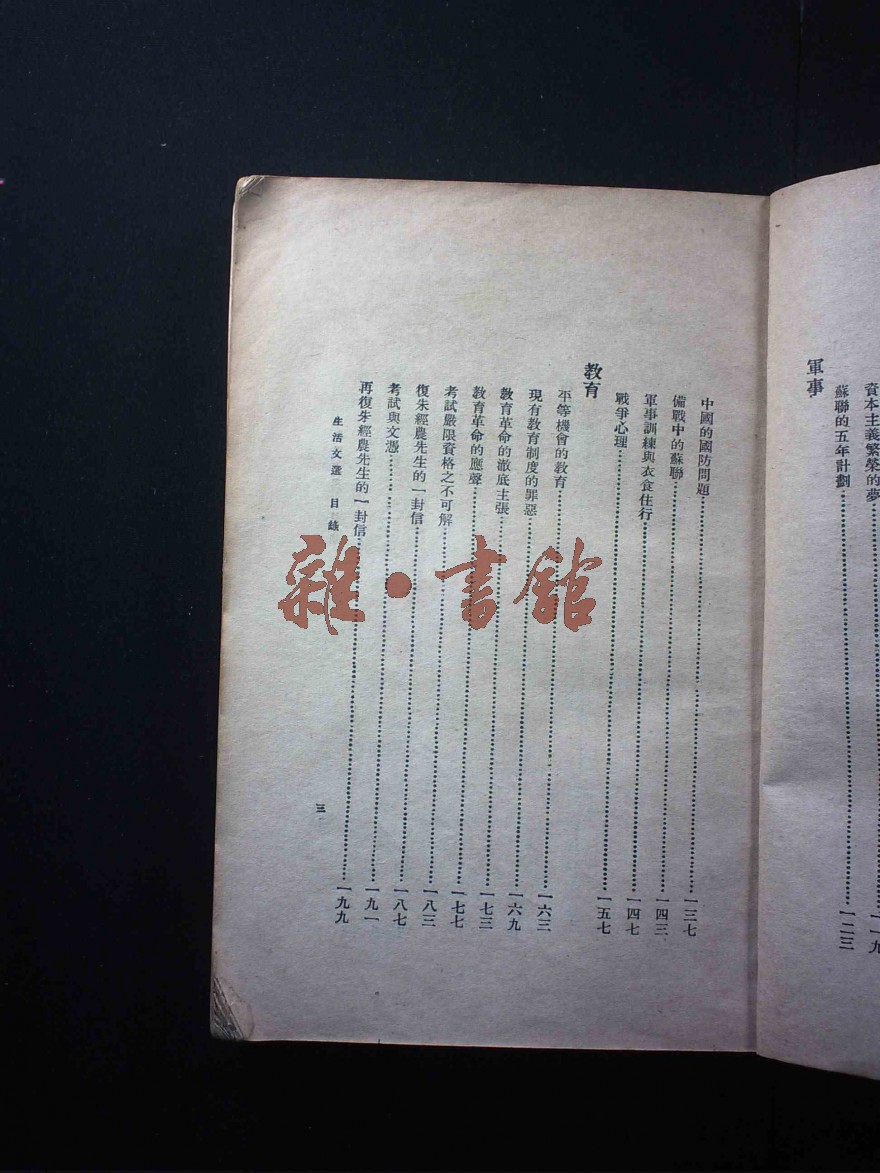 資本主義繁榮的夢……一一九
蘇聯的五年計劃……一二三
軍事
中國的國防問題……一三七
備戰中的蘇聯……一四三
軍事訓練與衣食住行……一四七
戰爭心理……一五七
教育
平等機會的教育……一六三
現有教育制度的罪惡……一六九
教育革命的澈底主張……一七三
教育革命的應聲……一七七
考試嚴限資格之不可解……一八三
復朱經農先生的一封信……一八七
考試與文憑……一九一
再復朱經農先生的一封信……一九九
生活文選 目錄
三
雜·書館